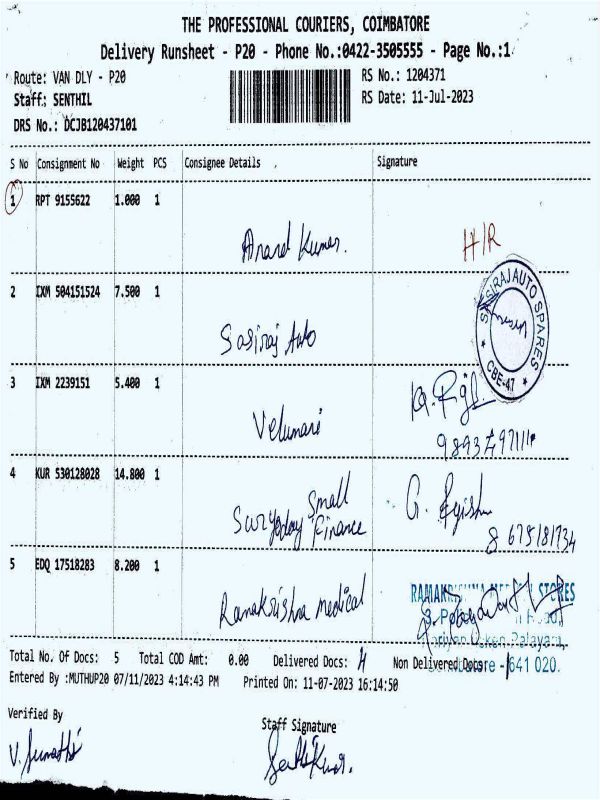 THE PROFESSIONAL COURIERS, COIMBATORE
Delivery Runsheet - P20 - Phone No.:0422-3505555 - Page No.:1
Route: VAN DLY - P20
RS No.: 1204371
Staff: SENTHIL
RS Date: 11-Jul-2023
DRS No.: DCJB120437101
S No Consignment No Weight PCS Consignee Details Signature
1 RPT 9155622 1.000 1
Anand Kumar. H/R
2 IXM 504151524 7.500 1
Sasiraj Auto
SASIRAJ AUTO SPARES
CBE-47
3 IXM 2239151 5.400 1
Velumani
4 KUR 530128028 14.800 1
Suryoday Small Finance
G.
8 675181734
5 EDQ 17518283 8.200 1
Ramakrishna medical
RAMAKRISHNA MEDICAL STORES
641 020.
Total No. Of Docs: 5 Total COD Amt: 0.00 Delivered Docs: 4 Non Delivered Docs
Entered By :MUTHUP20 07/11/2023 4:14:43 PM Printed On: 11-07-2023 16:14:50
Verified By
Staff Signature
V. Sumathi
Senthil Kumar.